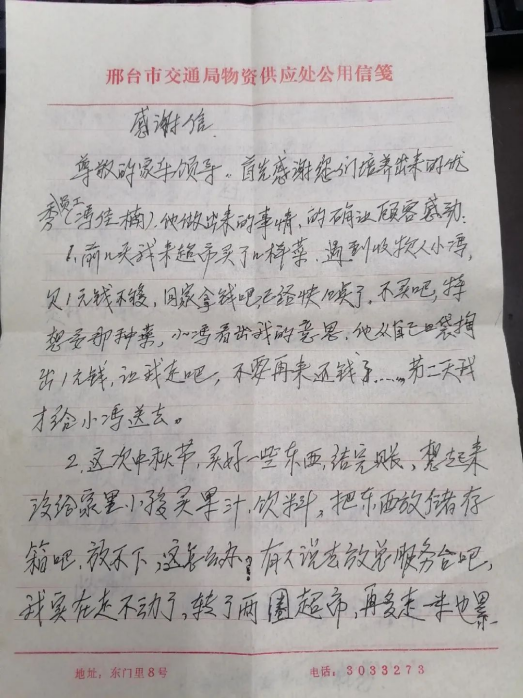 邢台市交通局物资供应处公用信笺
感谢信
尊敬的家乐领导。首先感谢您们培养出来的优
秀员工(冯佳楠)。他做出来的事情,的确让顾客感动:
1.前几天我来超市买了几样菜,遇到收款人小冯,
欠1元钱不够,回家拿钱吧,已经快12点了,不买吧,特
想要那种菜,小冯看出我的意思,他从自己口袋掏
出1元钱,让我走吧,不要再来还钱了……第二天我
才给小冯送去。
2.这次中秋节,买好一些东西,结完账,想起来
没给家里小孩买果汁,饮料,把东西放储存
箱吧,放不下,这怎么办?有人说去放总服务台吧,
我实在走不动了,转了两圈超市,再多走一米也累
地址:东门里8号
电话:3033273